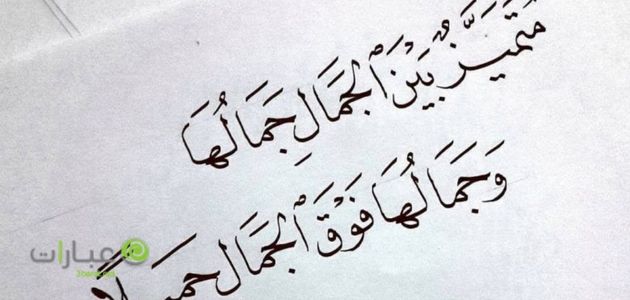 مُتَمَيِّزٌ بَيْنَ ٱلْجَمَالِ جَمَالُهَا
وَجَمَالُهَا فَوْقَ ٱلْجَمَال
عبارات